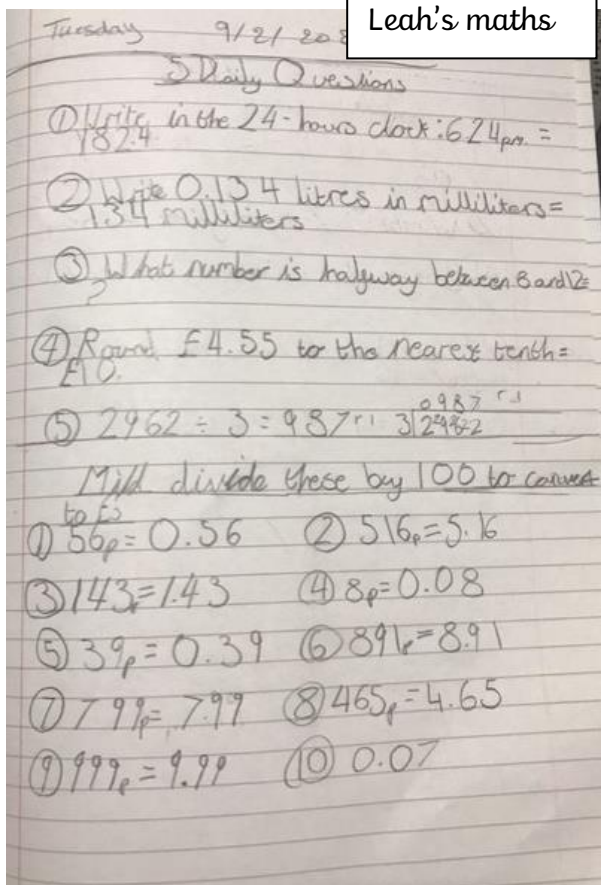 Leah's maths
Tuesday 9/2/202
5 Daily Questions
① Write in the 24-hours clock: 624pm. =
1824
② Write 0.134 litres in milliliters=
134 milliliters
③ What number is halfway between 8 and 12=
?
④ Round £4.55 to the nearest tenth=
£10.
⑤ 2962 ÷ 3 = 987 r1 0987 r1
3 2962
Mild divide these by 100 to convert
to £s
① 56p = 0.56 ② 516p = 5.16
③ 143p = 1.43 ④ 8p = 0.08
⑤ 39p = 0.39 ⑥ 891p = 8.91
⑦ 799p = 7.99 ⑧ 465p = 4.65
⑨ 999p = 9.99 ⑩ 0.07